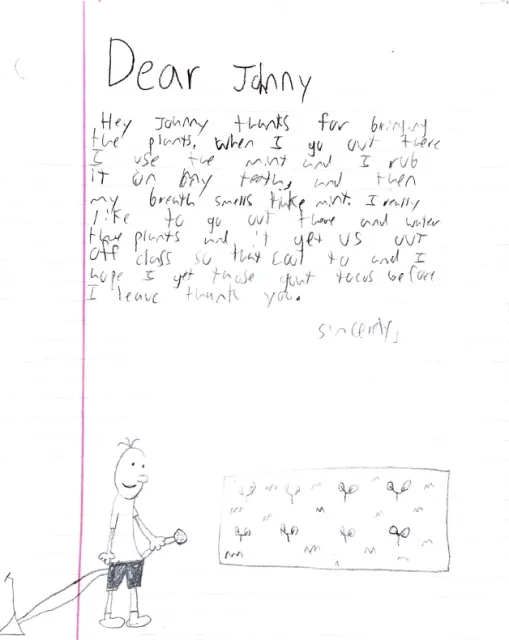 Dear Johnny
Hey Johnny thanks for bringing
the plants, when I go out there
I use the mint and I rub
it on my teeth, and then
my breath smells like mint. I really
like to go out there and water
the plants and it get us out
off class so that cool to and I
hope I get those goat tacos before
I leave thank you.
sincerly,